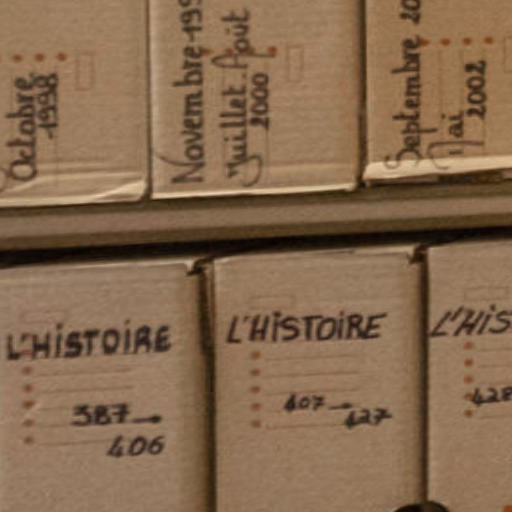 Octobre
1998
Novembre 199
Juillet. Août
2000
Septembre 20
Mai
2002
L'HISTOIRE
387→
406
L'HISTOIRE
407→
427
L'HIS
428